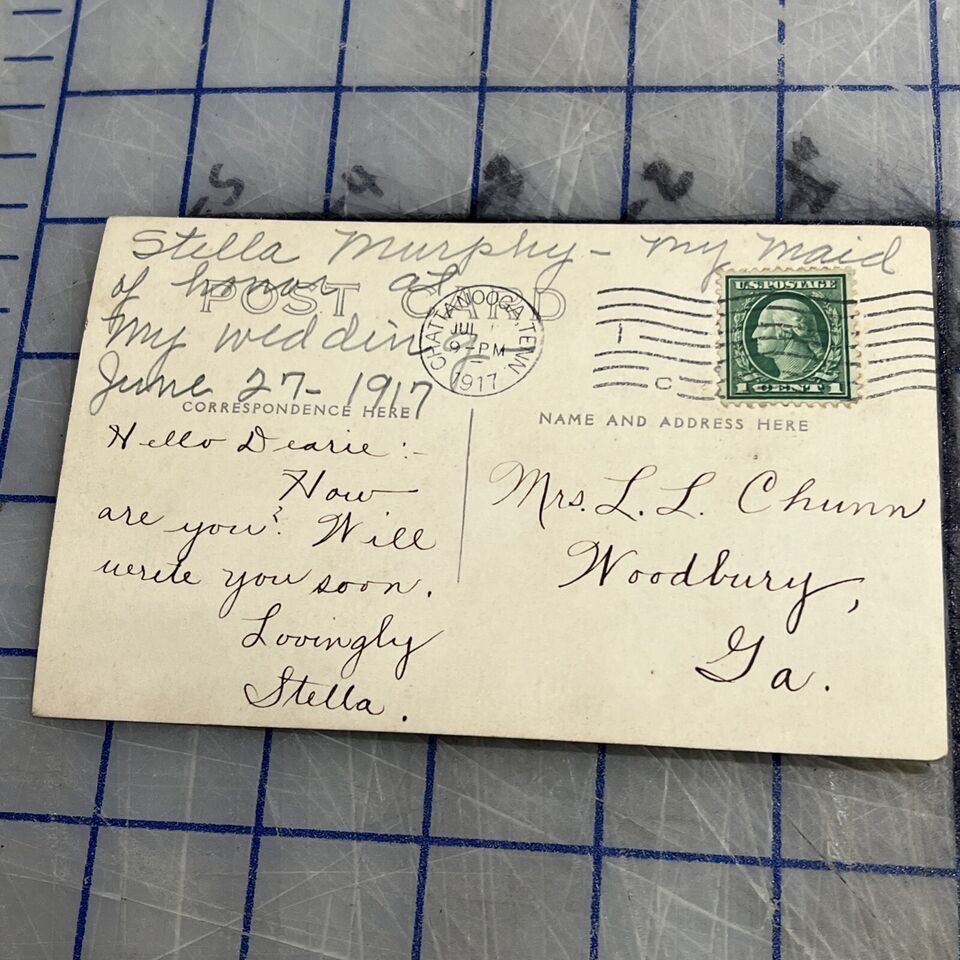 5 4 3 2 1
Stella Murphy - my maid
of honor at
POST CARD
my wedding -
June 27 - 1917
CHATTANOOGA, TENN
JUL
9-PM
1917
1
C
U.S. POSTAGE
1 CENT 1
CORRESPONDENCE HERE
NAME AND ADDRESS HERE
Hello Dearie :-
How
are you? Will
write you soon.
Lovingly
Stella.
Mrs. L. L. Chunn
Woodbury,
Ga.